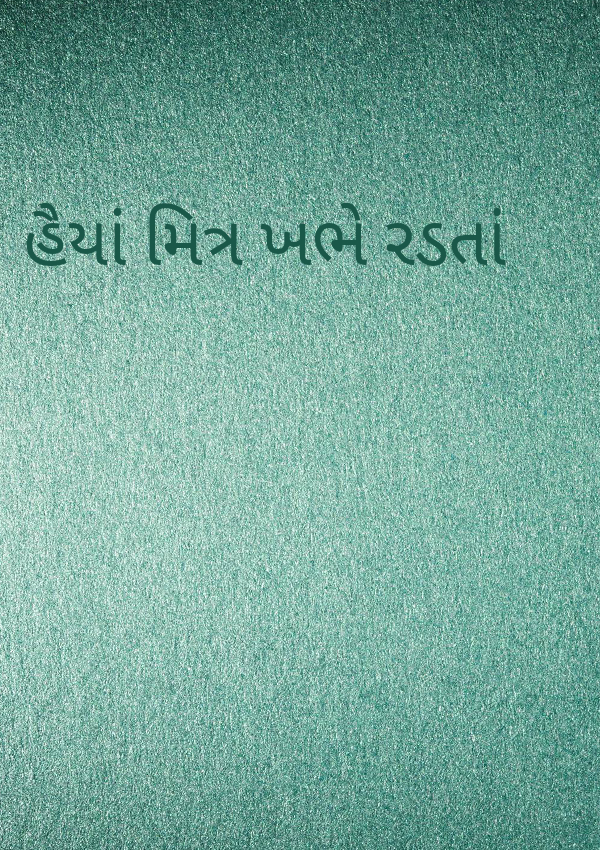 હૈયાં મિત્ર ખભે રડતાં